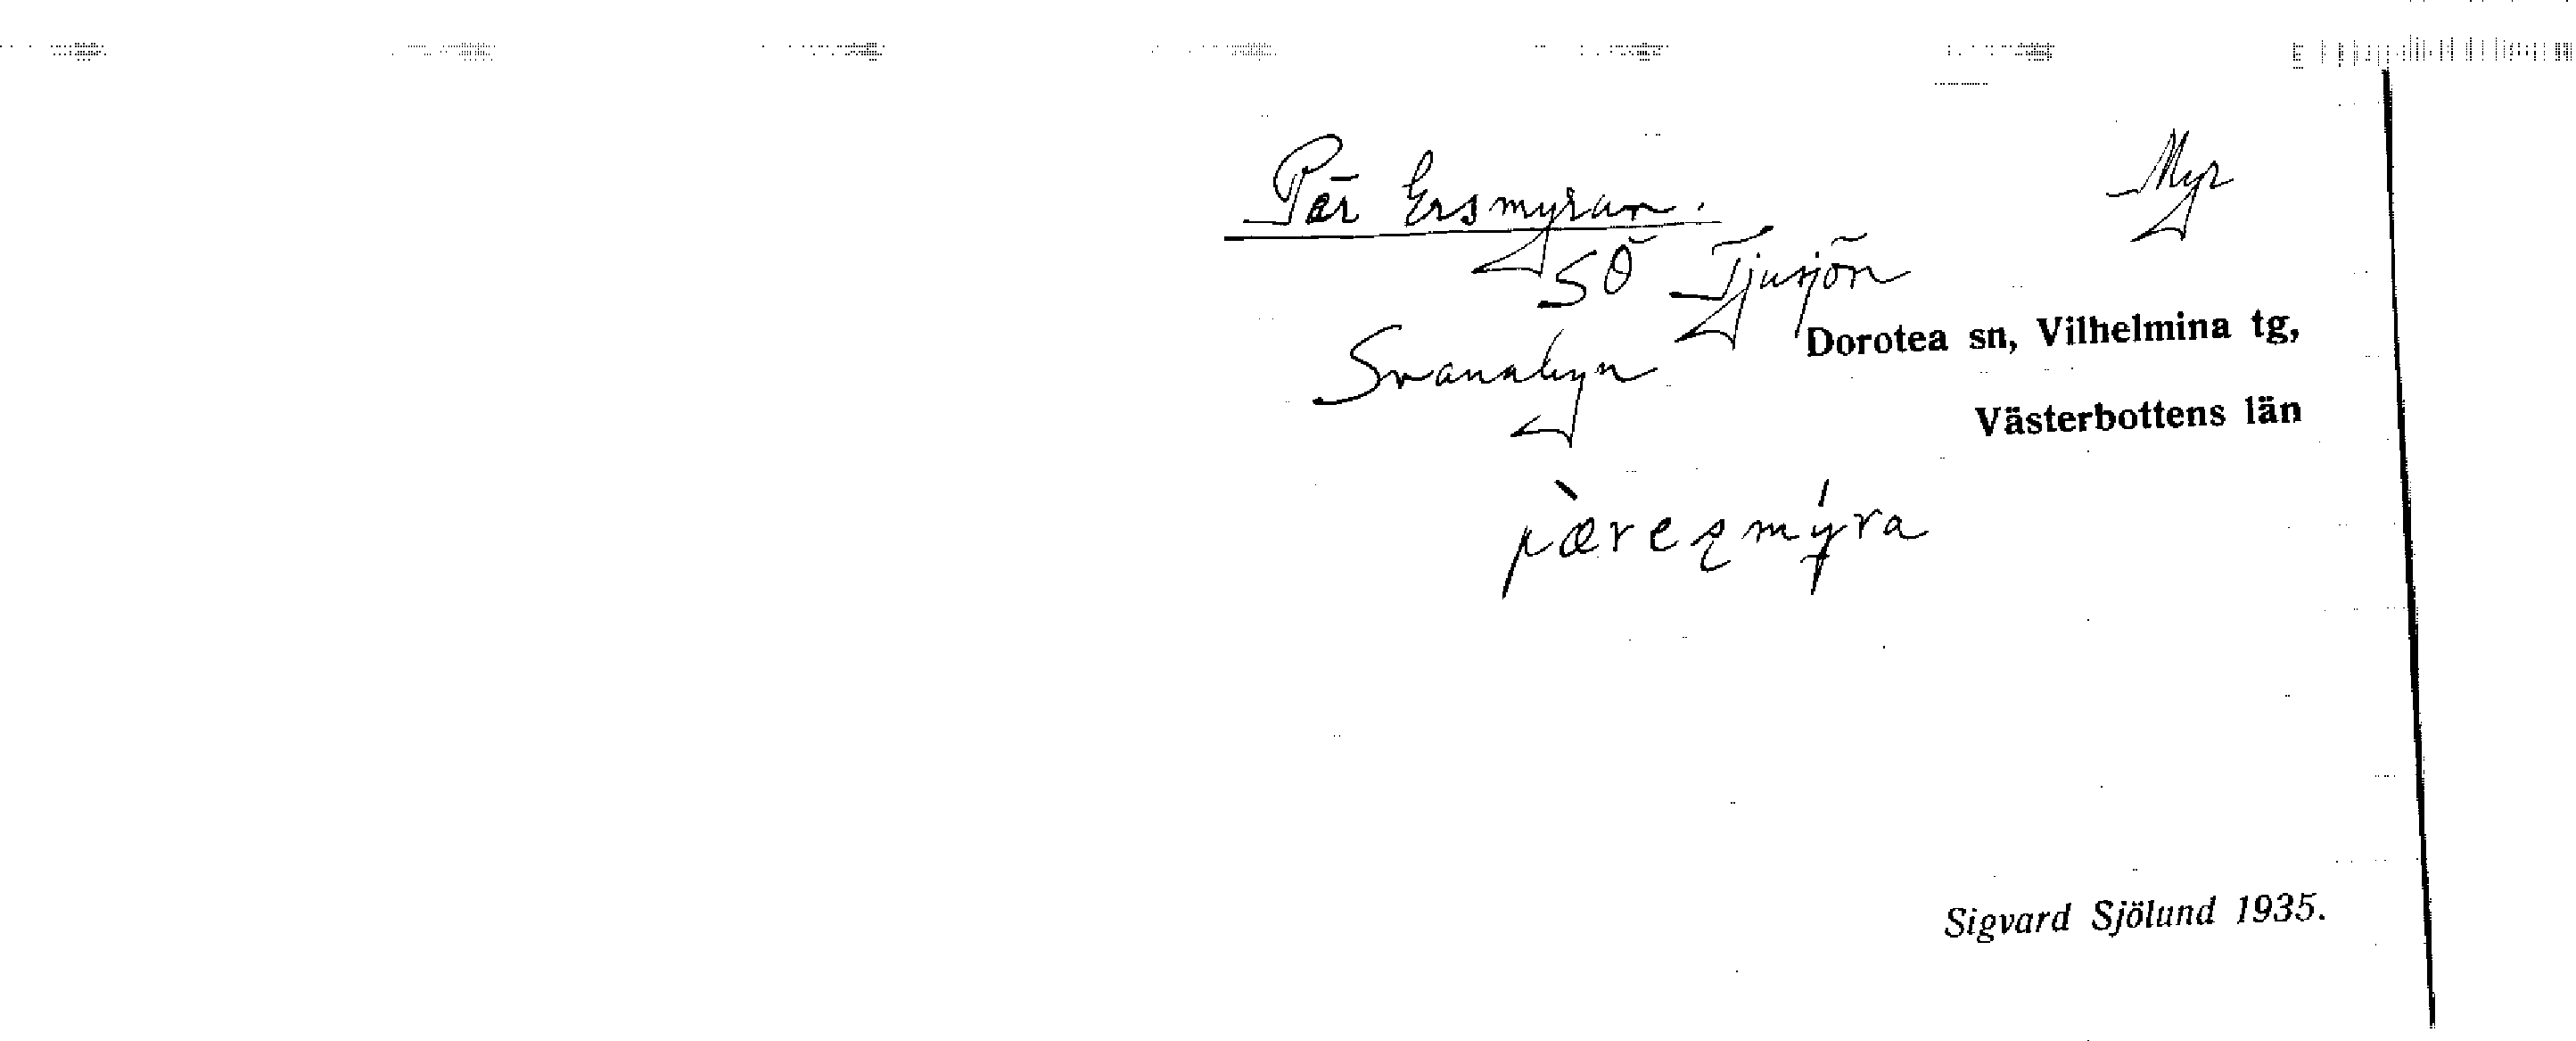 Pär Ersmyran. Myr
SÖ Tjusjön
Svanabyn
Dorotea sn, Vilhelmina tg,
Västerbottens län
pæ̀resmýra
Sigvard Sjölund 1935.